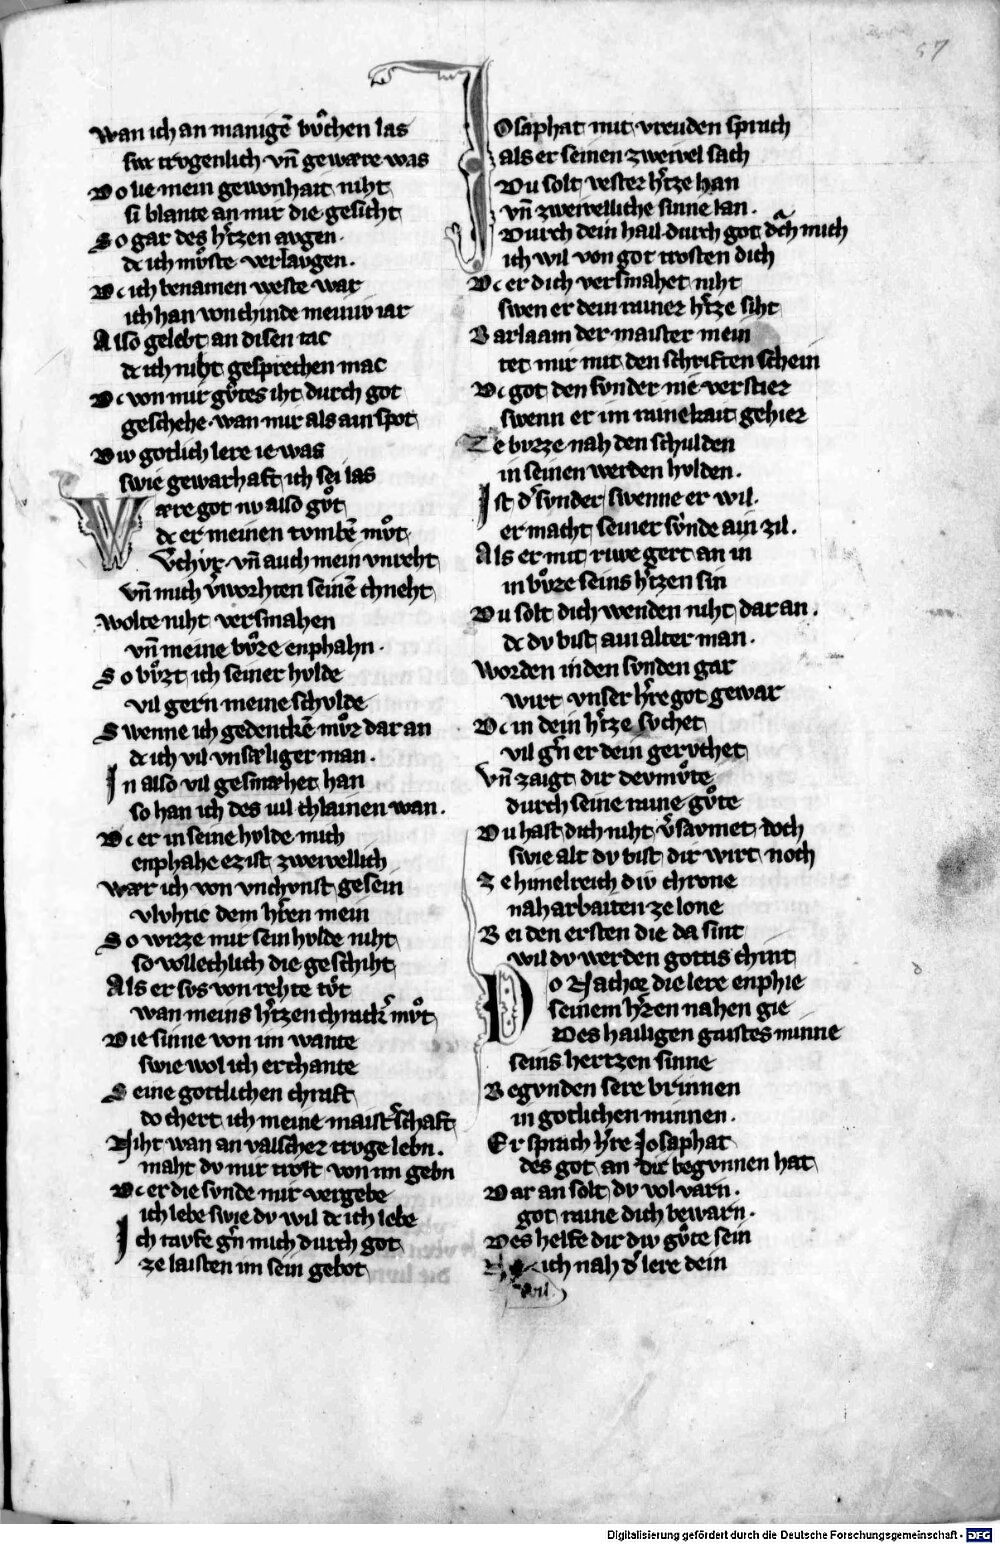 57
wan ich an manigē bůchen las
swi trvgenlich vn̄ gewære was
Do lie mein gewonhait niht
si blante an mir die gesicht
So gar des h̓tzen avgen
dc ich můste verlavgen.
Dc ich benamen weste war
ich han von chinde meiniv iar
Also gelebt an disen tac
dc ich niht gesprechen mac
Dc von mir gůtes iht durch got
geschehe wan mir als ain spot
Div gotlich lere ie was
swie gewarhaft ich sei las
Wære got nv also gůt
dc er meinen tvmbē můt
Vchivz vn̄ auch mein vnreht
vn̄ mich v̓worhten seinē chneht
wolte niht versmahen
vn̄ meine bůze enphahn.
So bůzt ich seiner hvlde
vil gern meine schvlde
Swenne ich gedenckē můz dar an
dc ich vil vnsæliger man.
In also vil gesmæhet han
so han ich des vil chlainen wan.
Dc er in seine hvlde mich
enphahe ez ist zweivellich
wær ich von vnchvnst gesein
vlvhtic dem h̓ren mein
So wizze mir sein hvlde niht
so vollechlich die geschiht
Als er svs von rehte tůt
wan meins h̓tzen chranck̓ můt
Die sinne von im wante
swie wol ich erchante
Seine gottlichen chraft
do chert ich meine maist̓schaft
Niht wan an valscher trvge lebn.
maht dv mir trost von im gebn
Dc er die svnde mir vergebe
ich lebe swie dv wil dc ich lebe
Ich tavfe g̓n mich durch got
ze laisten im sein gebot
Iosaphat mit vreuden sprach
als er seinen zweivel sach
Dv solt vester h̓tze han
vn̄ zweivelliche sinne lan.
Durch dein hail durch got dvͨch mich
ich wil von got trosten dich
Dc er dich versmahet niht
swen er dein rainez h̓tze siht
Barlaam der maister mein
tet mir mit den schriften schein
Dc got den svnder nie verstiez
swenn er im rainekait gehiez
Ze bvzze nah den schulden
in seinen werden hvlden.
Ist d̓ svnder swenne er wil.
er macht seiner svnde ain zil.
Als er mit riwe gert an in
in bůze seins h̓tzen sin
Dv solt dich wenden niht dar an.
dc dv bist ain alter man.
worden in den svnden gar
wirt vnser h̓re got gewar
Dc in dein h̓tze svchet
vil g̓n er dein gerůchet
Vn̄ zaigt dir devmůte
durch seine raine gůte
Dv hast dich niht v̓savmet doch
swie alt dv bist dir wirt noch
Ze himelreich div chrone
nah arbaiten ze lone
Bei den ersten die da sint
wil dv werden gottis chint
Do Nachor die lere enphie
seinem h̓zen nahen gie
Des hailigen gaistes minne
seins hertzen sinne
Begvnden sere brinnen
in gotlichen minnen.
Er sprach h̓re Josaphat
des got an dir begvnnen hat
Dar an solt dv vol varn.
got raine dich bewarn.
Des helfe dir div gůte sein
ich nah d̓ lere dein
wil.
Digitalisierung gefördert durch die Deutsche Forschungsgemeinschaft - DFG